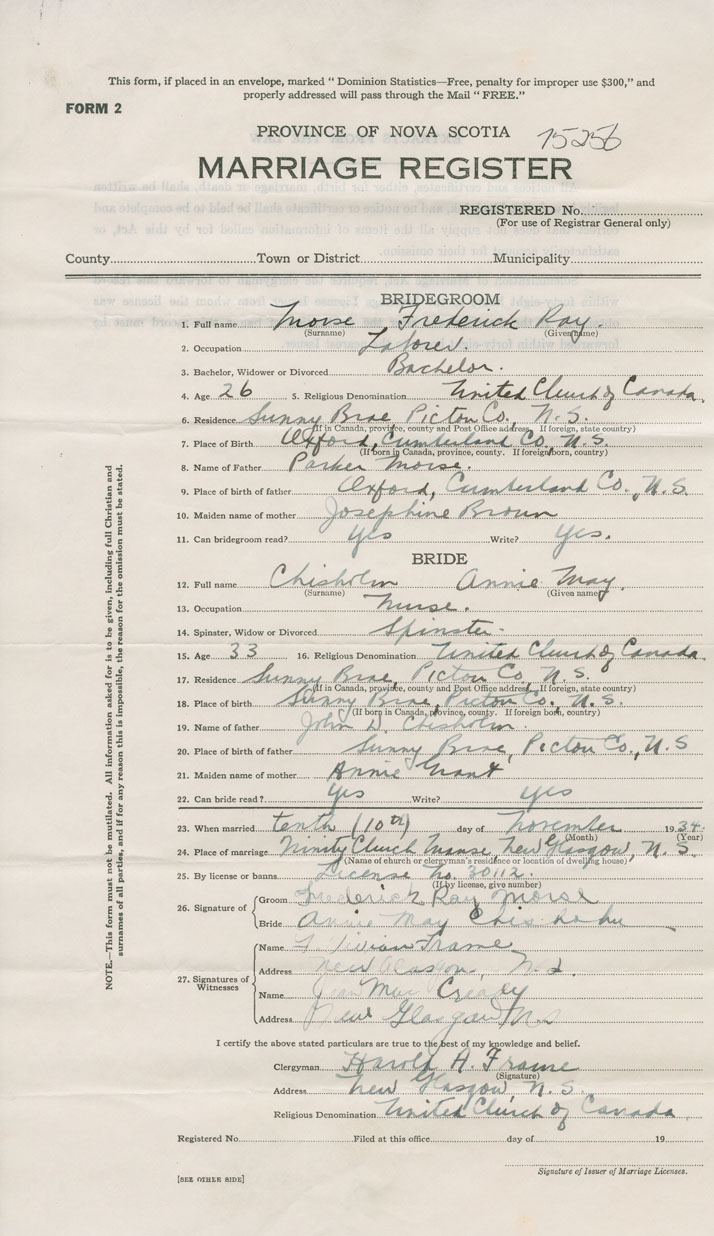 This form, if placed in an envelope, marked " Dominion Statistics—Free, penalty for improper use $300," and
properly addressed will pass through the Mail " FREE."
FORM 2
PROVINCE OF NOVA SCOTIA 75256
MARRIAGE REGISTER
REGISTERED No.
(For use of Registrar General only)
County Town or District Municipality
BRIDEGROOM
1. Full name Morse Frederick Ray.
(Surname) (Given name)
2. Occupation Laborer.
3. Bachelor, Widower or Divorced Bachelor.
4. Age 26 5. Religious Denomination United Church of Canada.
6. Residence Sunny Brae Pictou Co. N. S.
(If in Canada, province, county and Post Office address. If foreign, state country)
7. Place of Birth Oxford, Cumberland Co., N. S.
(If born in Canada, province, county. If foreign born, country)
8. Name of Father Parker Morse.
9. Place of birth of father Oxford, Cumberland Co., N. S.
10. Maiden name of mother Josephine Brown
11. Can bridegroom read? Yes Write? Yes.
BRIDE
12. Full name Chisholm Annie May.
(Surname) (Given name)
13. Occupation Nurse.
14. Spinster, Widow or Divorced Spinster.
15. Age 33 16. Religious Denomination United Church of Canada.
17. Residence Sunny Brae, Pictou Co., N. S.
(If in Canada, province, county and Post Office address. If foreign, state country)
18. Place of birth Sunny Brae, Pictou Co., N. S.
(If born in Canada, province, county. If foreign born, country)
19. Name of father John D. Chisholm.
20. Place of birth of father Sunny Brae, Pictou Co., N. S
21. Maiden name of mother Annie Grant
22. Can bride read? Yes Write? Yes
23. When married tenth (10th) day of November 1934.
(Month) (Year)
24. Place of marriage Trinity Church Manse, New Glasgow, N. S.
(Name of church or clergyman's residence or location of dwelling house)
25. By license or banns License No. 30112.
(If by license, give number)
26. Signature of
Groom Frederick Ray Morse
Bride Annie May Chisholm
27. Signatures of Witnesses
Name Frame
Address New Glasgow, N. S.
Name Jean Mac
Address New Glasgow N.S
I certify the above stated particulars are true to the best of my knowledge and belief.
Clergyman Harold A. Frame
(Signature)
Address New Glasgow, N. S.
Religious Denomination United Church of Canada.
Registered No. Filed at this office day of 19
Signature of Issuer of Marriage Licenses.
[SEE OTHER SIDE]
NOTE.—This form must not be mutilated. All information asked for is to be given, including full Christian and
surnames of all parties, and if for any reason this is impossible, the reason for the omission must be stated.